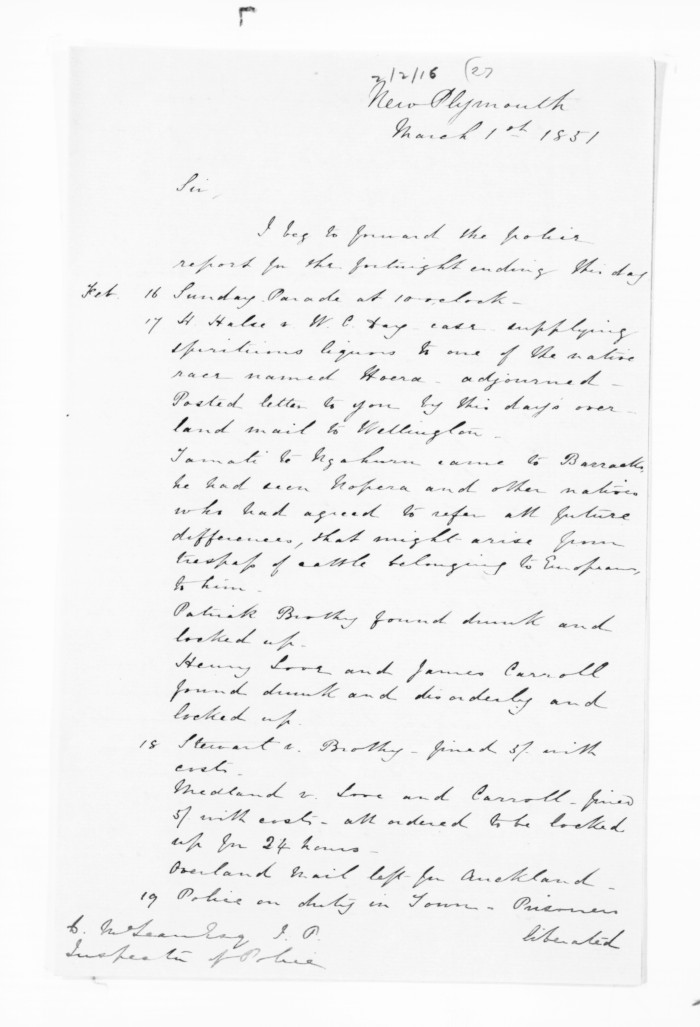 2/2/16 (27
New Plymouth
March 1st 1851
Sir,
I beg to forward the police
report for the fortnight ending this day
Feb. 16 Sunday. Parade at 10 oclock -
17 H. Halse v. W. C. Hay case supplying
spirituous liquors to one of the native
race named Hoera - adjourned -
Posted letter to you by this day's over-
land mail to Wellington -
Tamati to Ngahuru came to Barracks,
he had seen Nopera and other natives
who had agreed to refer all future
differences, that might arise from
trespass of cattle belonging to Europeans,
to him -
Patrick Brothy found drunk and
locked up.
Henry Love and James Carroll
found drunk and disorderly and
locked up.
18 Stewart v. Brothy - fined 5/ with
costs.
Medland v. Love and Carroll - fined
5/ with costs - all ordered to be locked
up for 24 hours -
Overland Mail left for Auckland -
19 Police on duty in Town - Prisoners
liberated
D. McLean Esq J. P.
Inspector of Police